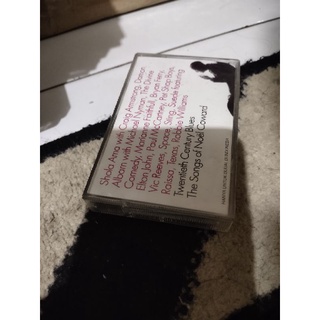 Shola Ama with Craig Armstrong, Damon
Albarn with Michael Nyman, The Divine
Comedy, Marianne Faithfull, Bryan Ferry,
Elton John, Paul McCartney, Pet Shop Boys,
Vic Reeves, Space, Sting, Suede featuring
Raissa, Texas, Robbie Williams
Twentieth Century Blues
The Songs of Noel Coward